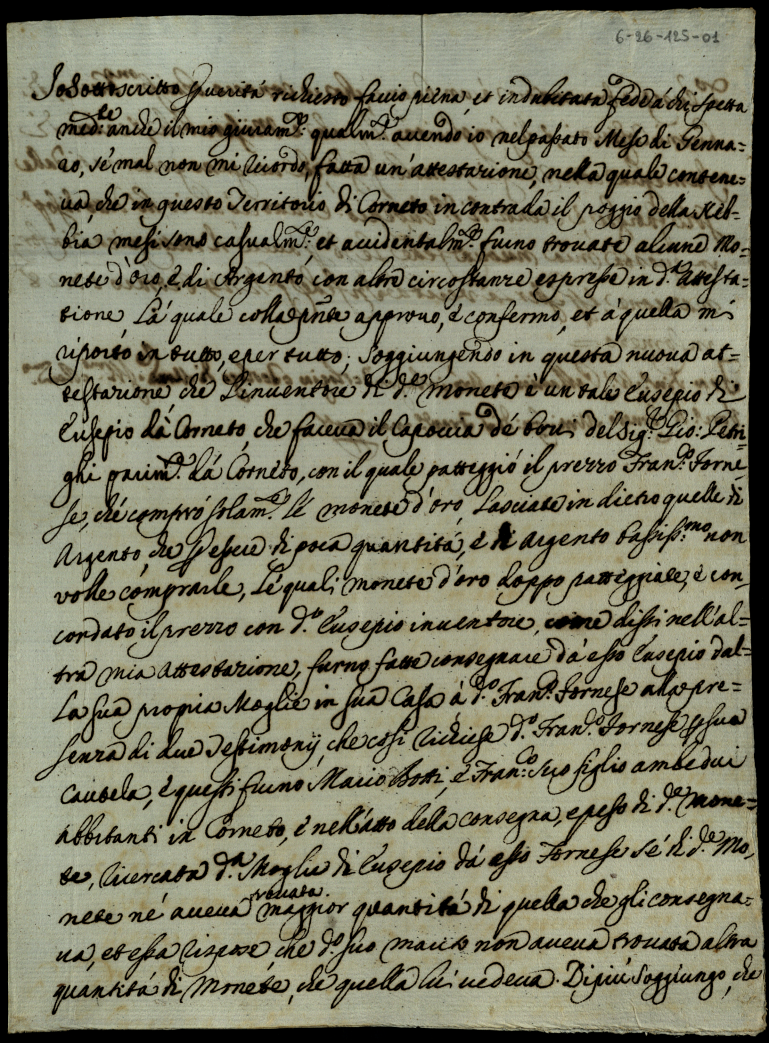 6-26-125-01
Io Sottoscritto p verità richiesto faccio piena, et indubitata fede à chi spetta
med.te anche il mio giuram.to qualm.te avendo io nel passato Mese di Genna=
ro, se mal non mi ricordo, fatta un'attestazione, nella quale contene=
va che in questo Territorio di Corneto in contrada il poggio della Neb=
bia mesi sono casualm.te et accidentalm.te furno trovate alcune Mo=
nete d'oro, è di Argento con altre circostanze espresse in d.a Attesta=
tione La quale colla pnte approvo, è confermo, et à quella mi
riporto in tutto, e per tutto; Soggiungendo in questa nuova at=
testazione che L'inventore di d.e Monete è un tale Eusepio di
Eusepio dà Corneto che faceva il Capoccia dè bovi del Sig.r Gio: Petri=
ghi parim.te dà Corneto, con il quale patteggiò il prezzo Fran.co Forne=
se, chè comprò solam.te le monete d'oro Lasciate in dietro quelle di
Argento, che p essere di poca quantità, è di Argento bassiss.mo non
volle comprarle, Le quali monete d'oro doppo patteggiate, è con=
cordato il prezzo con d.o Eusepio inventore, come dissi nell'al=
tra mia Attestazione, furno fatte consegnare dà esso Eusepio dal=
La sua propria Moglie in sua Casa à d.o Fran.co Fornese alla pre=
senza di due Testimonij, che così richiese d.o Fran.co Fornese p sua
cautela, è questi furno Mario Botti, è Fran.co suo figlio ambedui
abbitanti in Corneto, è nell'atto della consegna, e peso di d.e Mone=
te, ricercata d.a Moglie di Eusepio dà esso Fornese sè di d.e Mo,
nete nè aveva trovata maggior quantità di quella che gli consegna=
va, et essa rispose, che d.o suo marito non aveva trovata altra
quantità di Monete, che quella lui vedeva. Di più soggiungo, che